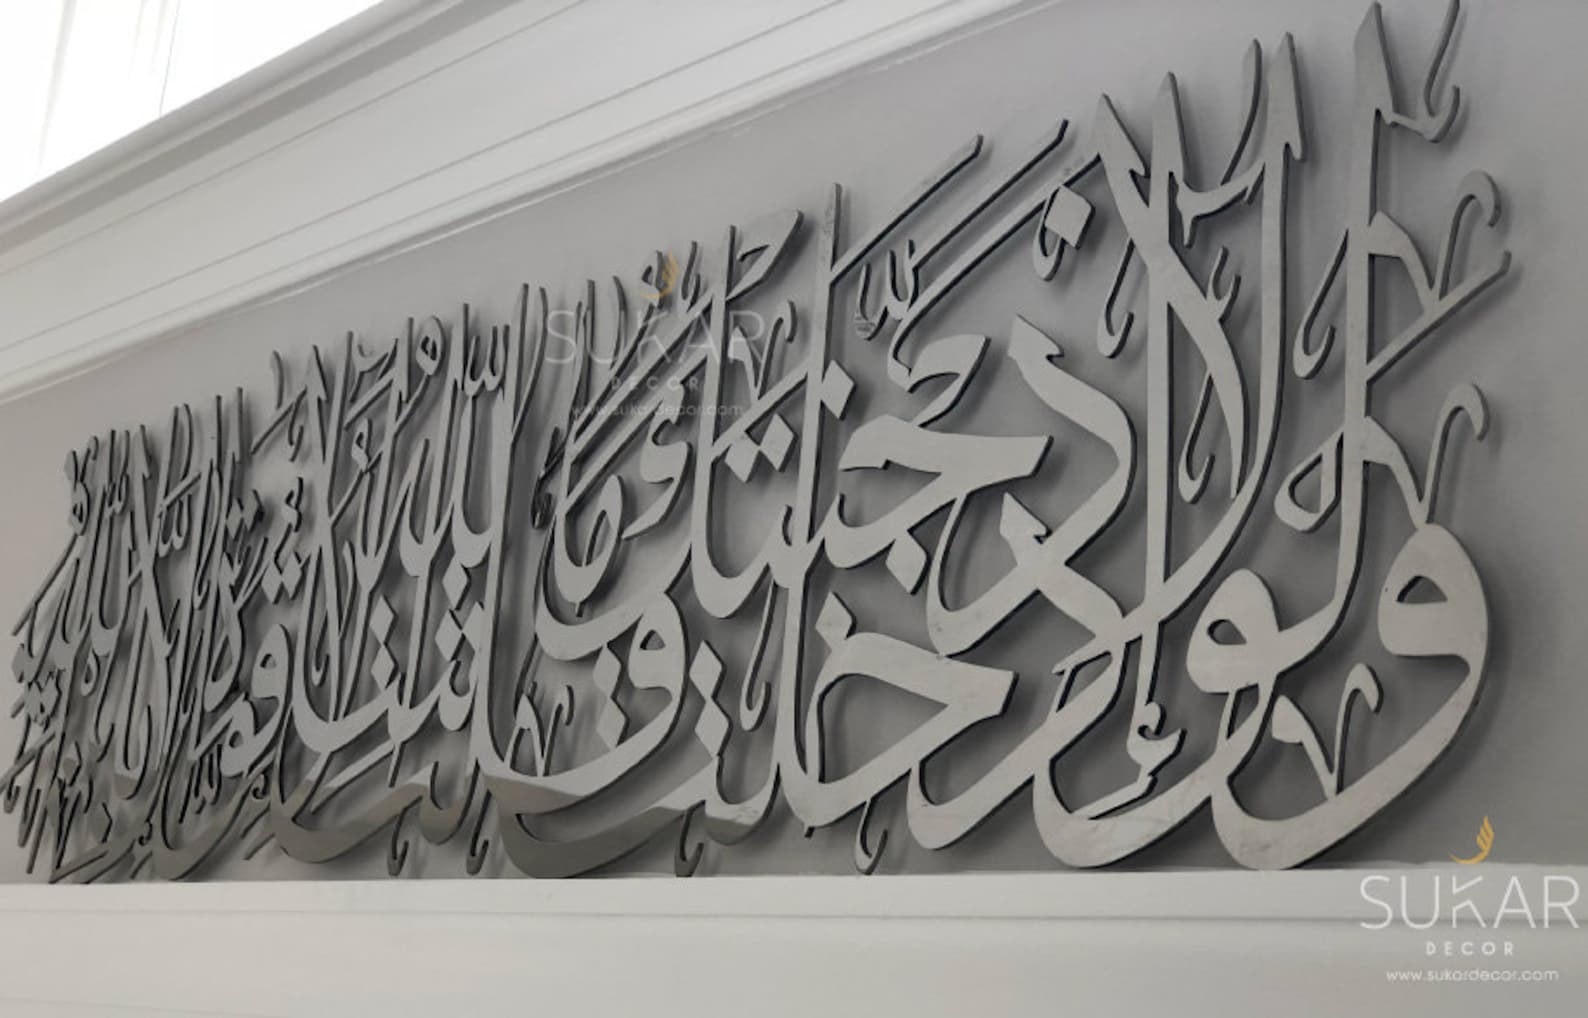 ولولا إذ دخلت جنتك قلت ما شاء الله لا قوة إلا بالله
SUKAR
DECOR
www.sukardecor.com
SUKAR
DECOR
www.sukardecor.com